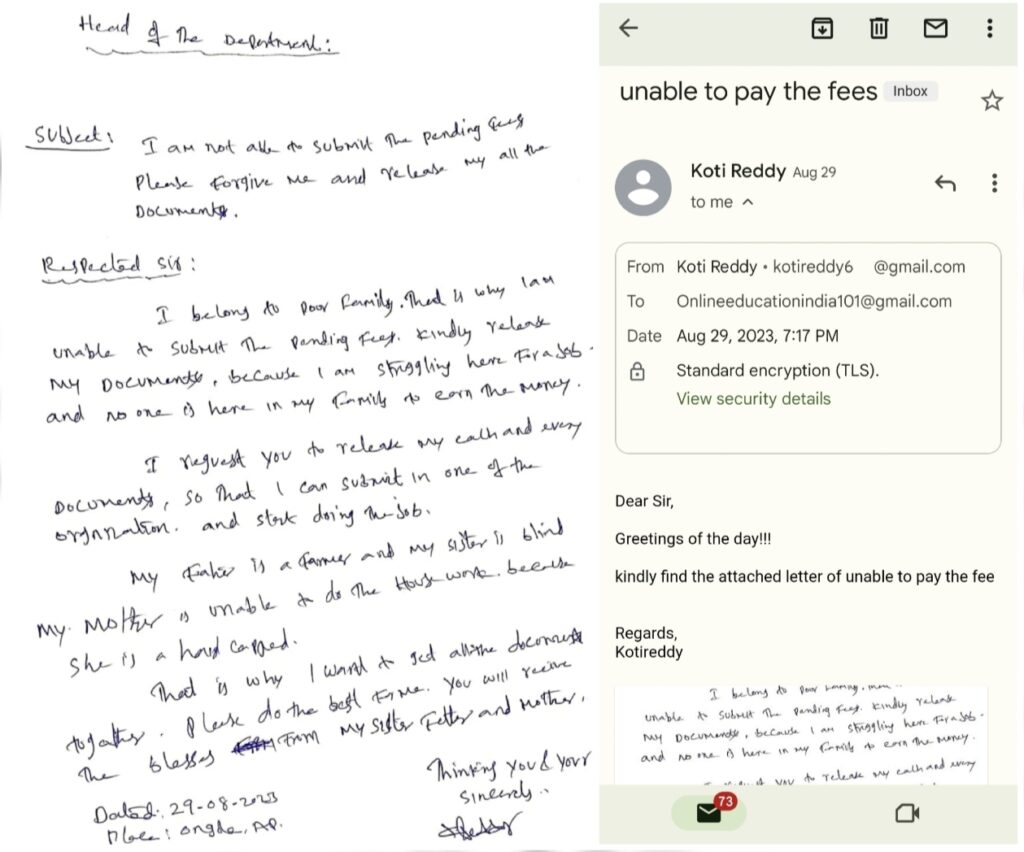 Head of The Department:
Subject: I am not able to submit The pending fees
Please Forgive Me and release my all the
Documents.
Respected Sir:
I belong to Poor Family. That is why I am
unable to submit The Panding Fees. Kindly release
My Documents, because I am struggling here For a Job.
and no one is here in my Family to earn The Money.
I request you to release my each and every
Documents, so That I can submit in one of the
organization. and start doing the job.
My Father is a Farmer and my sister is blind
My. Mother is unable to do The House work. because
She is a hand capped.
That is why I want to get all the documents
togather. Please do the best For me. You will receive
The blesses From My Sister Father and Mother.
Thinking you & your
Sincerely..
Dated: 29-08-2023
Place: Ongole, AP.
unable to pay the fees Inbox
Koti Reddy Aug 29
to me
From Koti Reddy • kotireddy6 @gmail.com
To Onlineeducationindia101@gmail.com
Date Aug 29, 2023, 7:17 PM
Standard encryption (TLS).
View security details
Dear Sir,
Greetings of the day!!!
kindly find the attached letter of unable to pay the fee
Regards,
Kotireddy
I belong to Poor
unable to submit The Panding Fees. Kindly release
My Documents, because I am struggling here For a Job.
and no one is here in my Family to earn The Money.
you to release my each and every
73